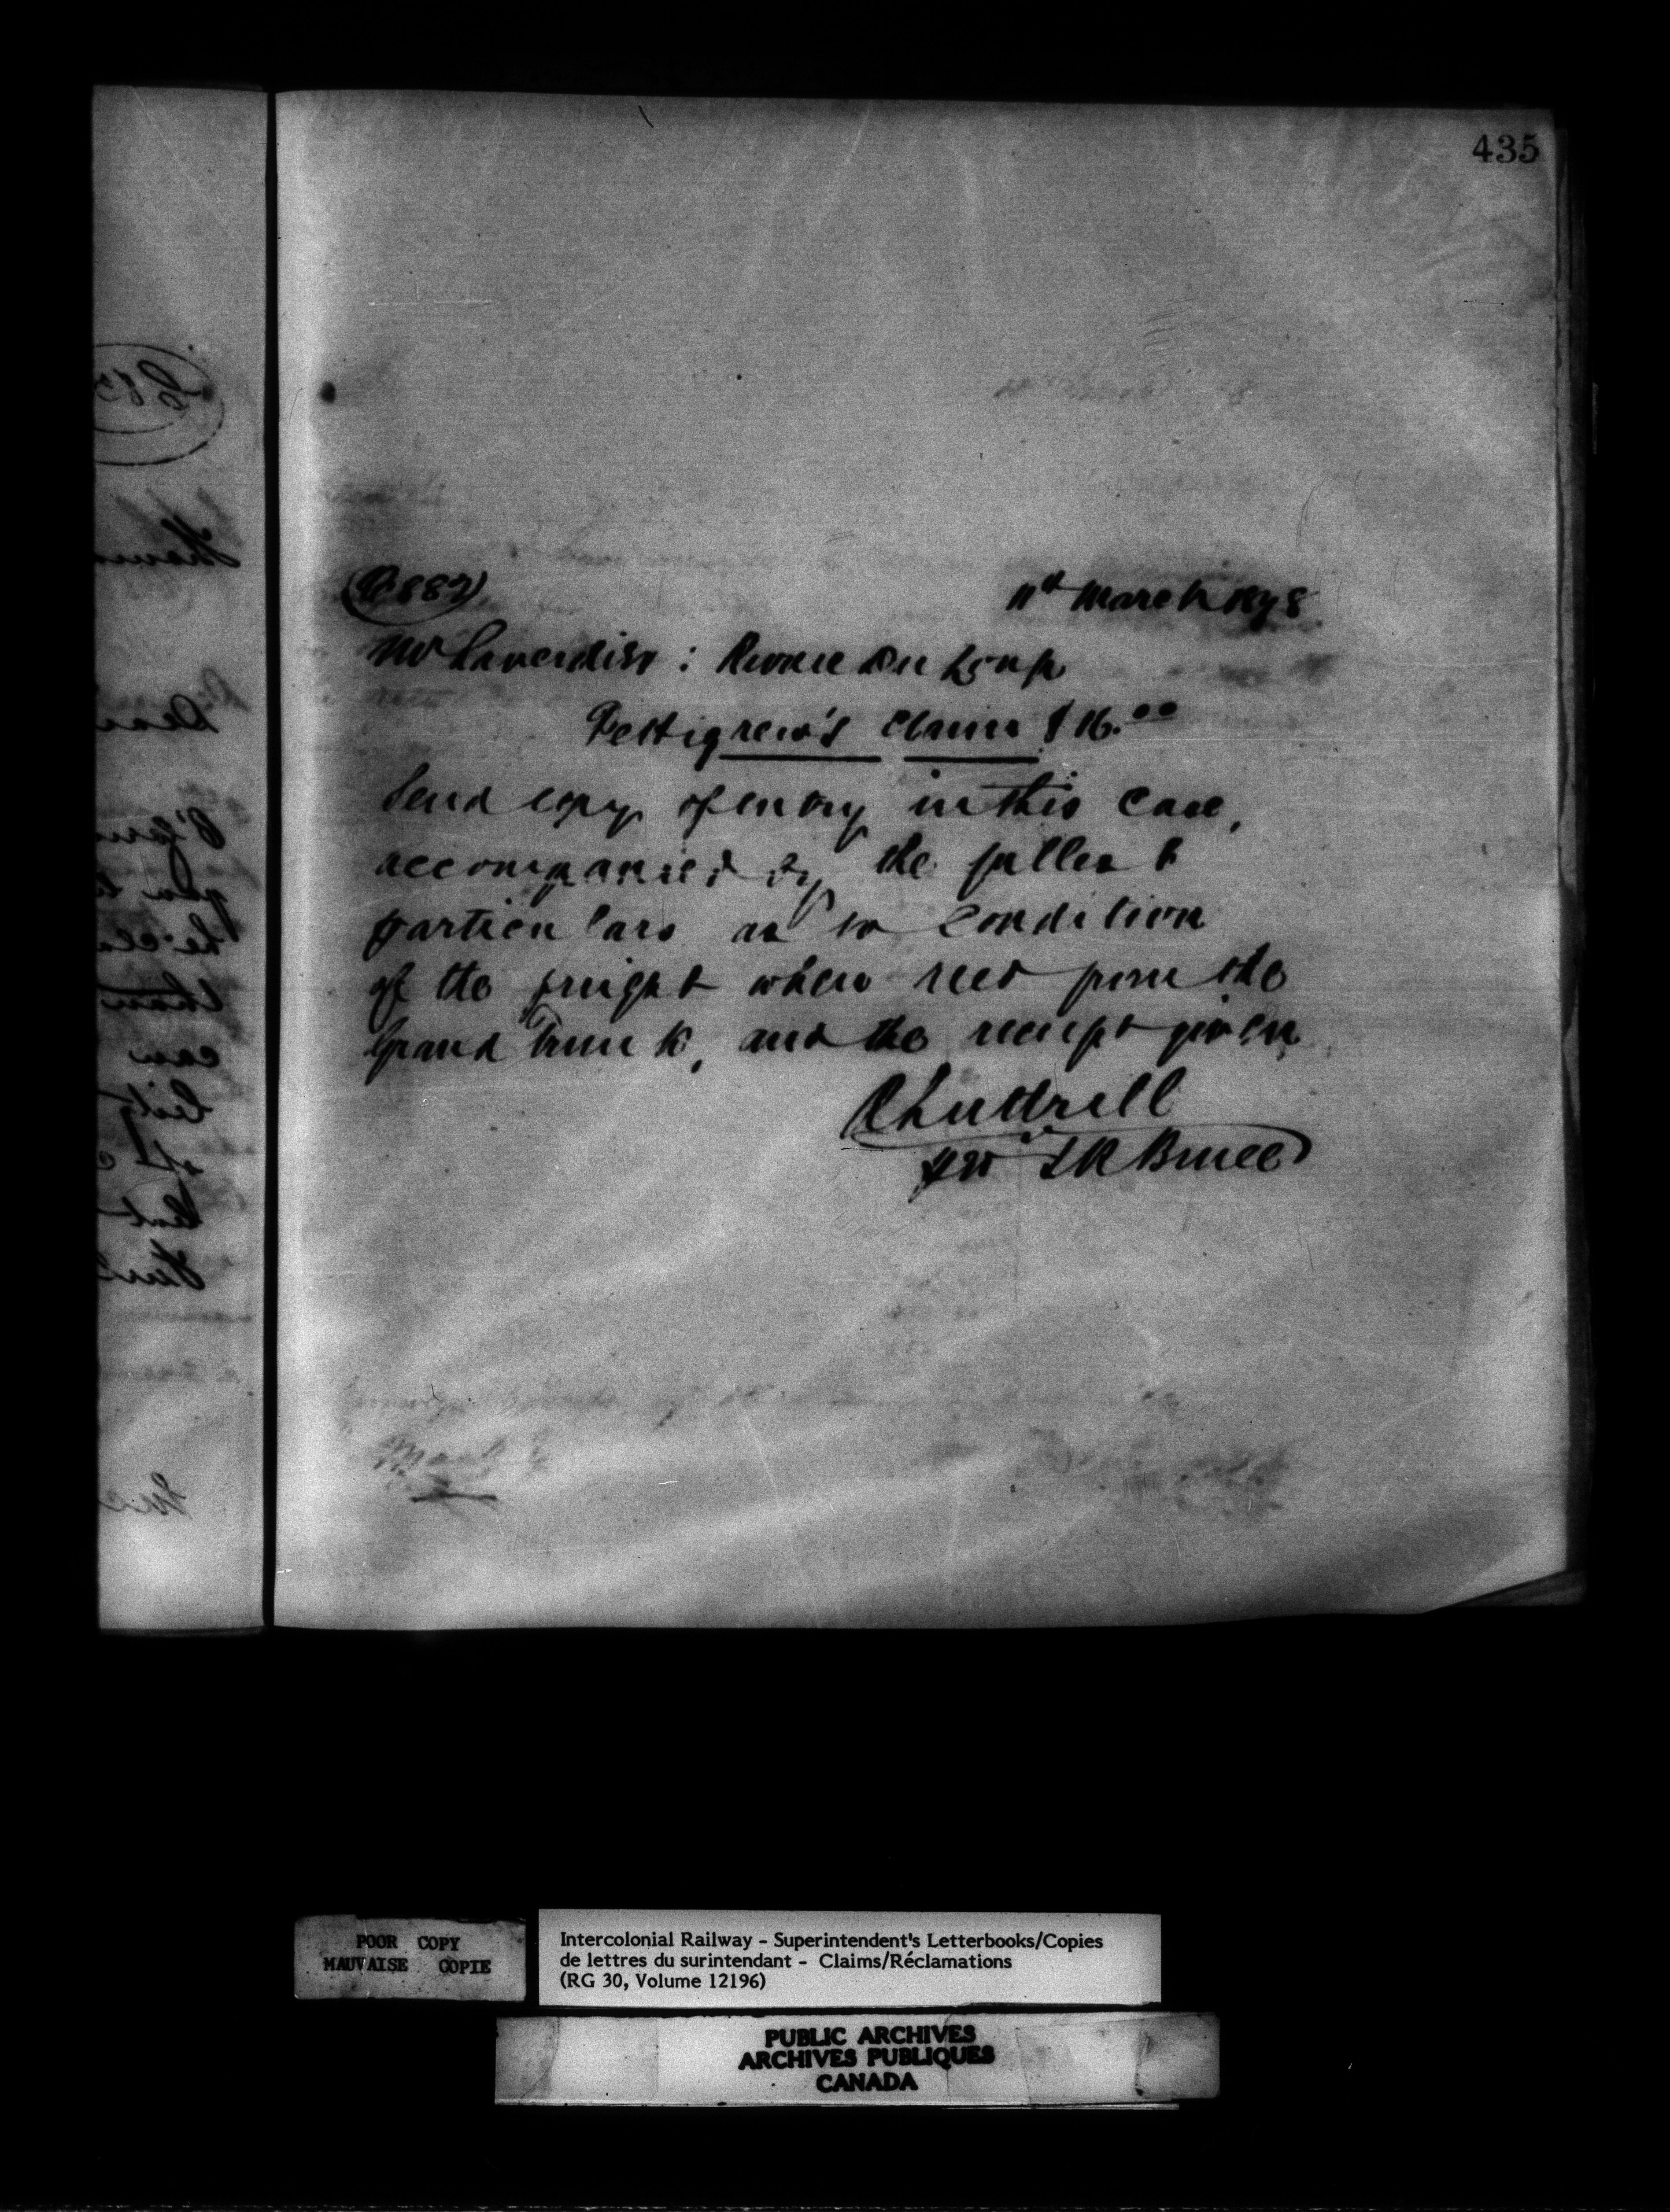 435
11th March 1878
Mr Cavendish : Riviere Du Loup
Pettigrew's Claim $16.00
Send copy of entry in this case,
accompanied by the fullest
particulars as to condition
of the freight when recd from the
Grand Trunk, and the receipt given
A Luttrell
pr T R Bruce
POOR COPY
MAUVAISE COPIE
Intercolonial Railway - Superintendent's Letterbooks/Copies
de lettres du surintendant - Claims/Réclamations
(RG 30, Volume 12196)
PUBLIC ARCHIVES
ARCHIVES PUBLIQUES
CANADA